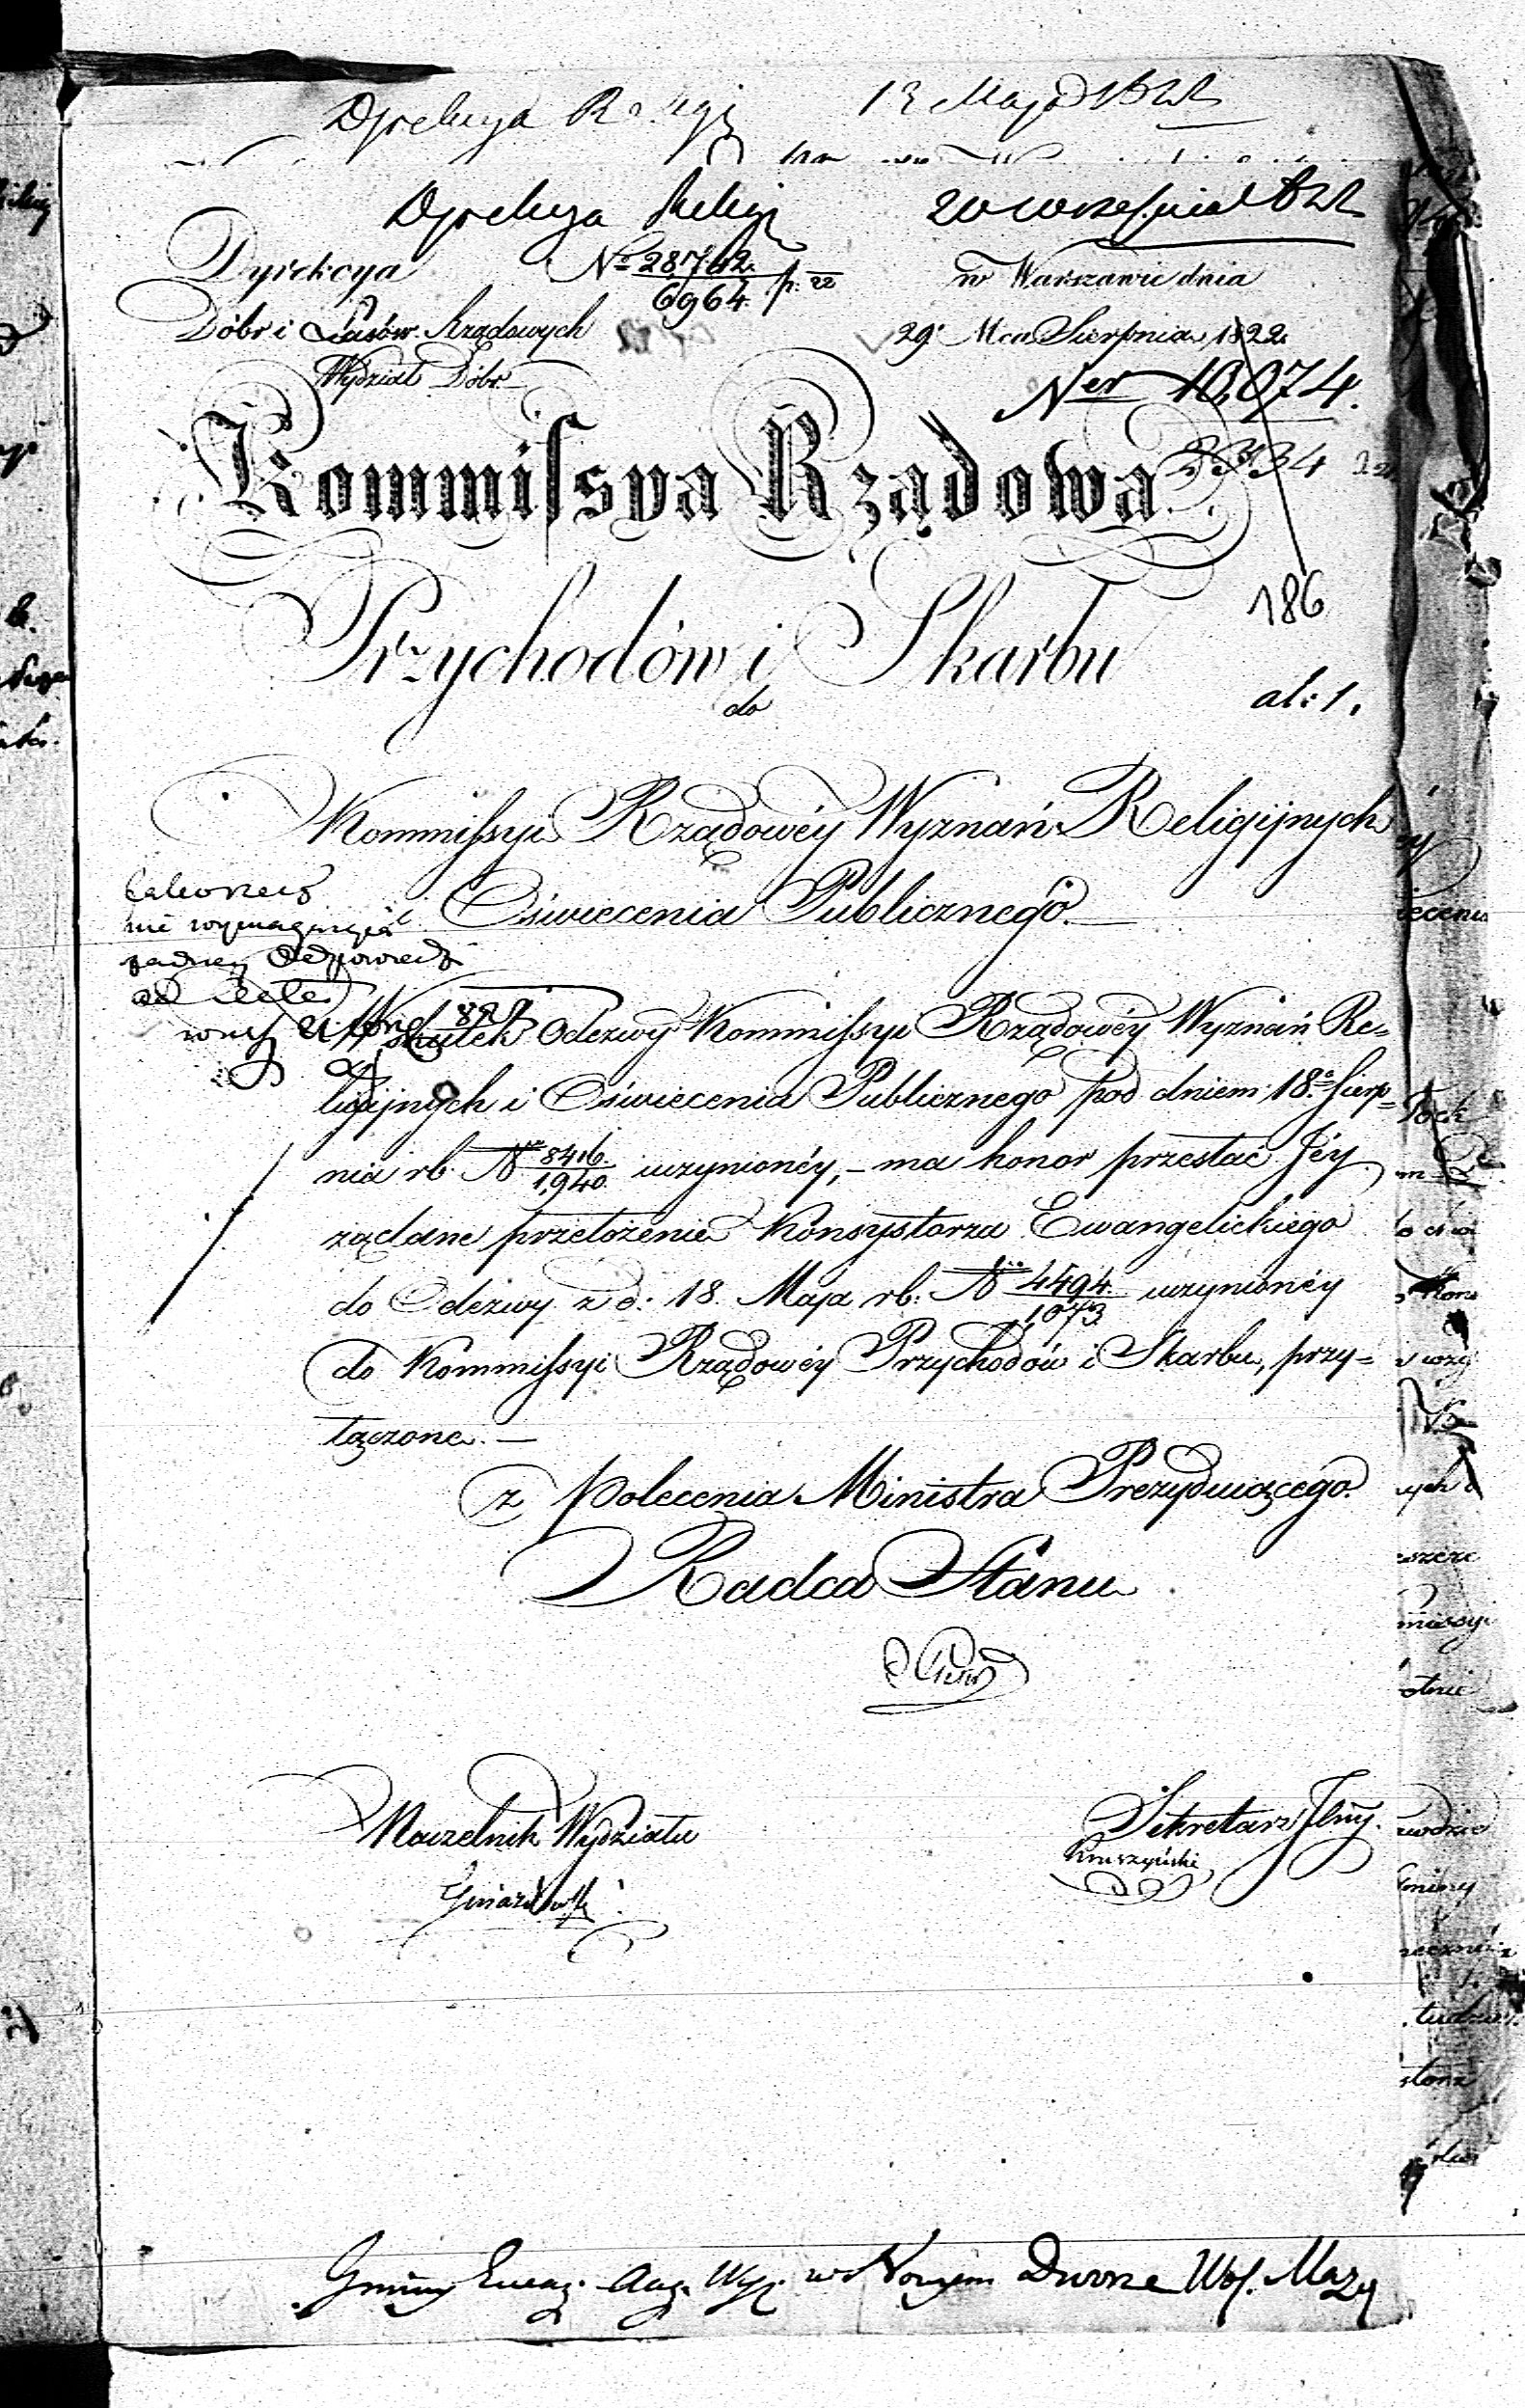 Dyrekcya 13 Maja 1822
Dyrekcya Religij 20 Wrzesnia 1822
Dyrekcya
Dóbr i Lasów Rządowych
Wydział Dóbr
No 28,742. / 6964. p. 22
w Warszawie dnia
29. Mca Sierpnia 1822.
Ner 10,074.
3334 22
Kommissya Rządowa
186
Przychodów i Skarbu
al: 1.
do
Kommissyi Rządowéy Wyznań Religijnych
i Oświecenia Publicznego. —
nie wymagająca
żadney Odpowiedzi
ad Acta
W skutek Odezwy Kommissyi Rządowéy Wyznań Re=
ligijnych i Oświecenia Publicznego pod dniem 18. Sierp=
nia rb. No 8416. / 1,940. uczynionéy, – ma honor przesłać Jéy
żądane przełożenie Konsystorza Ewangelickiego
do Odezwy z d. 18. Maja rb. No 4494. / 1,073 uczynionéy
do Kommissyi Rządowéy Przychodów i Skarbu, przy=
łączone. —
z Polecenia Ministra Prezyduiącego.
Radca Stanu
Naczelnik Wydziału
Gniazdowski
Sekretarz Jlny.
Kruszyński
Gminy Ewag. Aug. Wyz. w Nowym Dworze Woj. Mazow